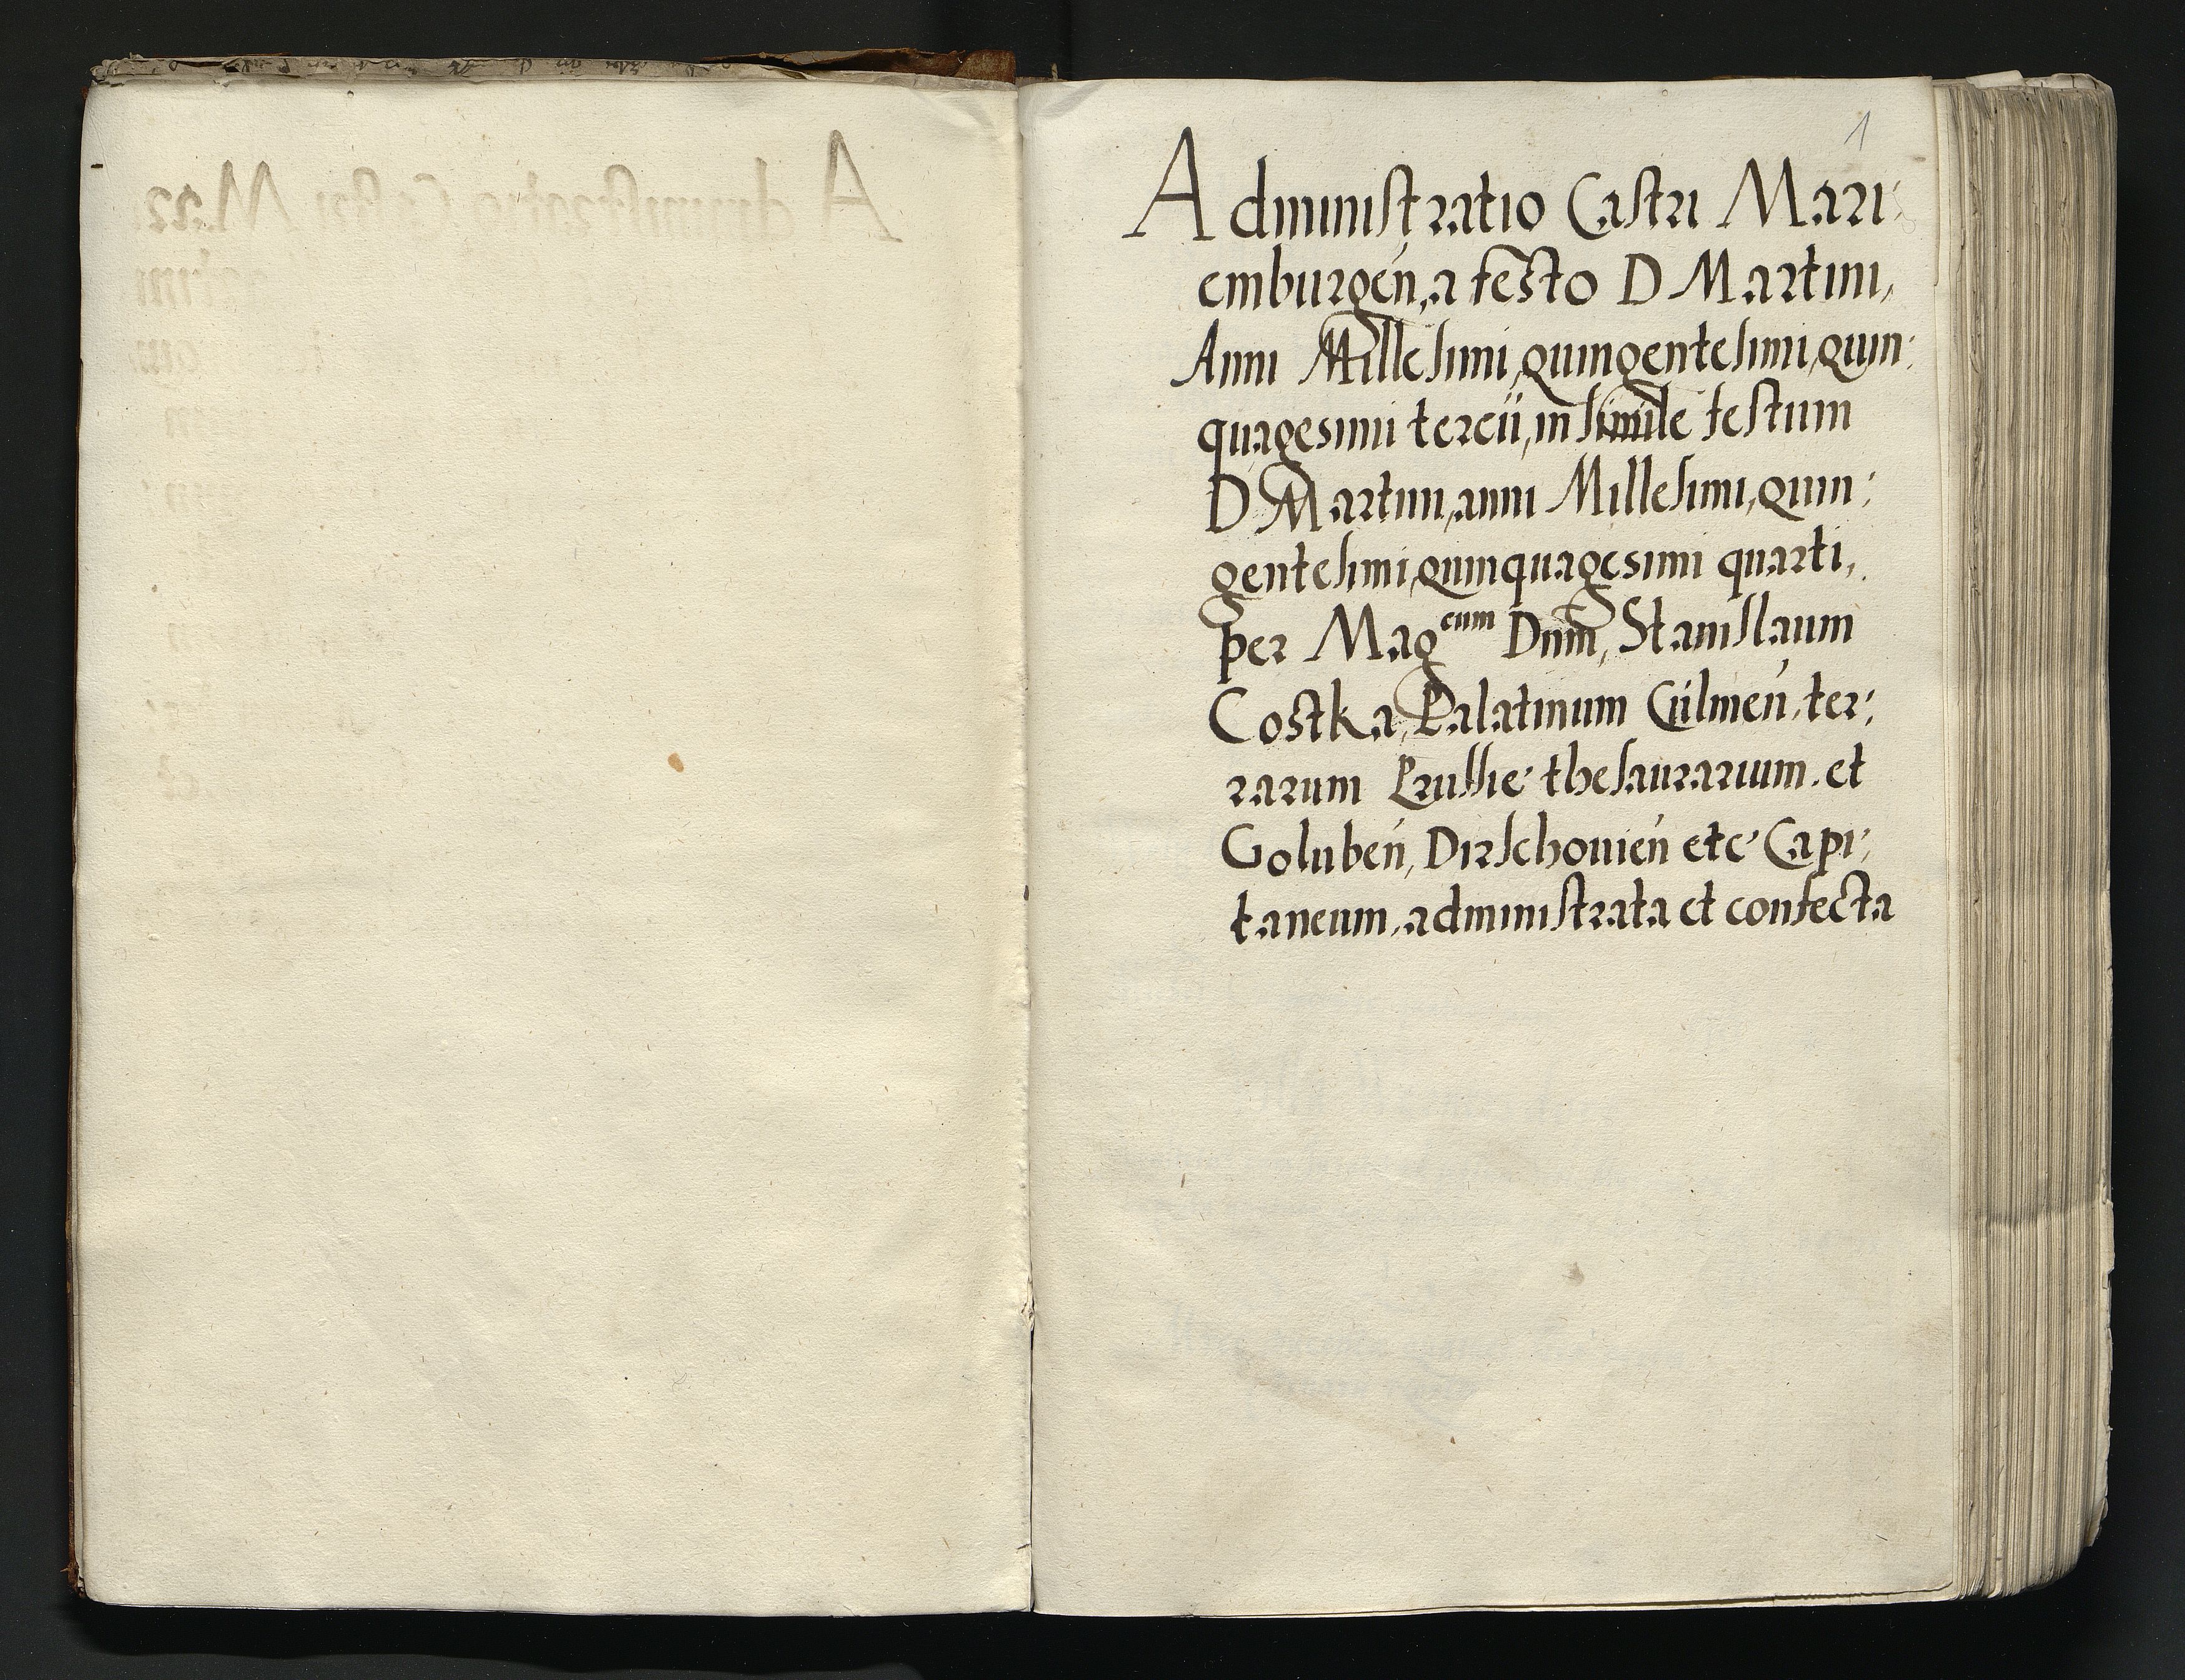 1
Administratio Castri Mari:
emburgeń, a festo D Martini,
Anni Millesimi, quingentesimi, quin:
quagesimi tercii, in simile festum
D Martini, anni Millesimi, quin:
gentesimi, quinquagesimi quarti,
per Mag^cum Dnm̄, Stanislaum
Costka, Palatinum Culmeń, ter:
rarum Prussie thesaurarium, et
Golubeń, Dirschouień etc Capi:
taneum, administrata et confecta